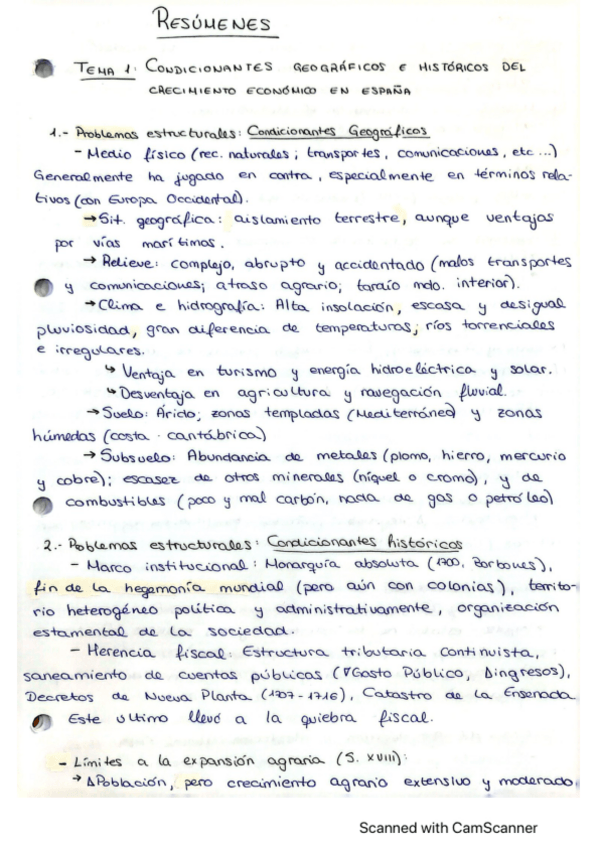 RESÚMENES
TEMA 1: CONDICIONANTES GEOGRÁFICOS E HISTÓRICOS DEL
CRECIMIENTO ECONÓMICO EN ESPAÑA
1.- Problemas estructurales: Condicionantes Geográficos
- Medio físico (rec. naturales; transportes, comunicaciones, etc...)
Generalmente ha jugado en contra, especialmente en términos rela-
tivos (con Europa Occidental).
→ Sit. geográfica: aislamiento terrestre, aunque ventajas
por vías marítimas.
→ Relieve: complejo, abrupto y accidentado (malos transportes
y comunicaciones; atraso agrario; tardío mdo. interior).
→ Clima e hidrografía: Alta insolación, escasa y desigual
pluviosidad, gran diferencia de temperaturas; ríos torrenciales
e irregulares.
↳ Ventaja en turismo y energía hidroeléctrica y solar.
↳ Desventaja en agricultura y navegación fluvial.
→ Suelo: Árido; zonas templadas (Mediterráneo) y zonas
húmedas (costa cantábrica)
→ Subsuelo: Abundancia de metales (plomo, hierro, mercurio
y cobre); escasez de otros minerales (níquel o cromo), y de
combustibles (poco y mal carbón, nada de gas o petróleo)
2.- Poblemas estructurales: Condicionantes históricos
- Marco institucional: Monarquía absoluta (1700, Borbones),
fin de la hegemonía mundial (pero aún con colonias), territo-
rio heterogéneo política y administrativamente, organización
estamental de la sociedad.
- Herencia fiscal: Estructura tributaria continuista,
saneamiento de cuentas públicos (∇Gasto Público, ∆ingresos),
Decretos de Nueva Planta (1707-1716), Catastro de la Ensenada
Este ultimo llevó a la quiebra fiscal.
- Límites a la expansión agraria (S. XVIII):
→ ∆Población, pero crecimiento agrario extensivo y moderado
Scanned with CamScanner